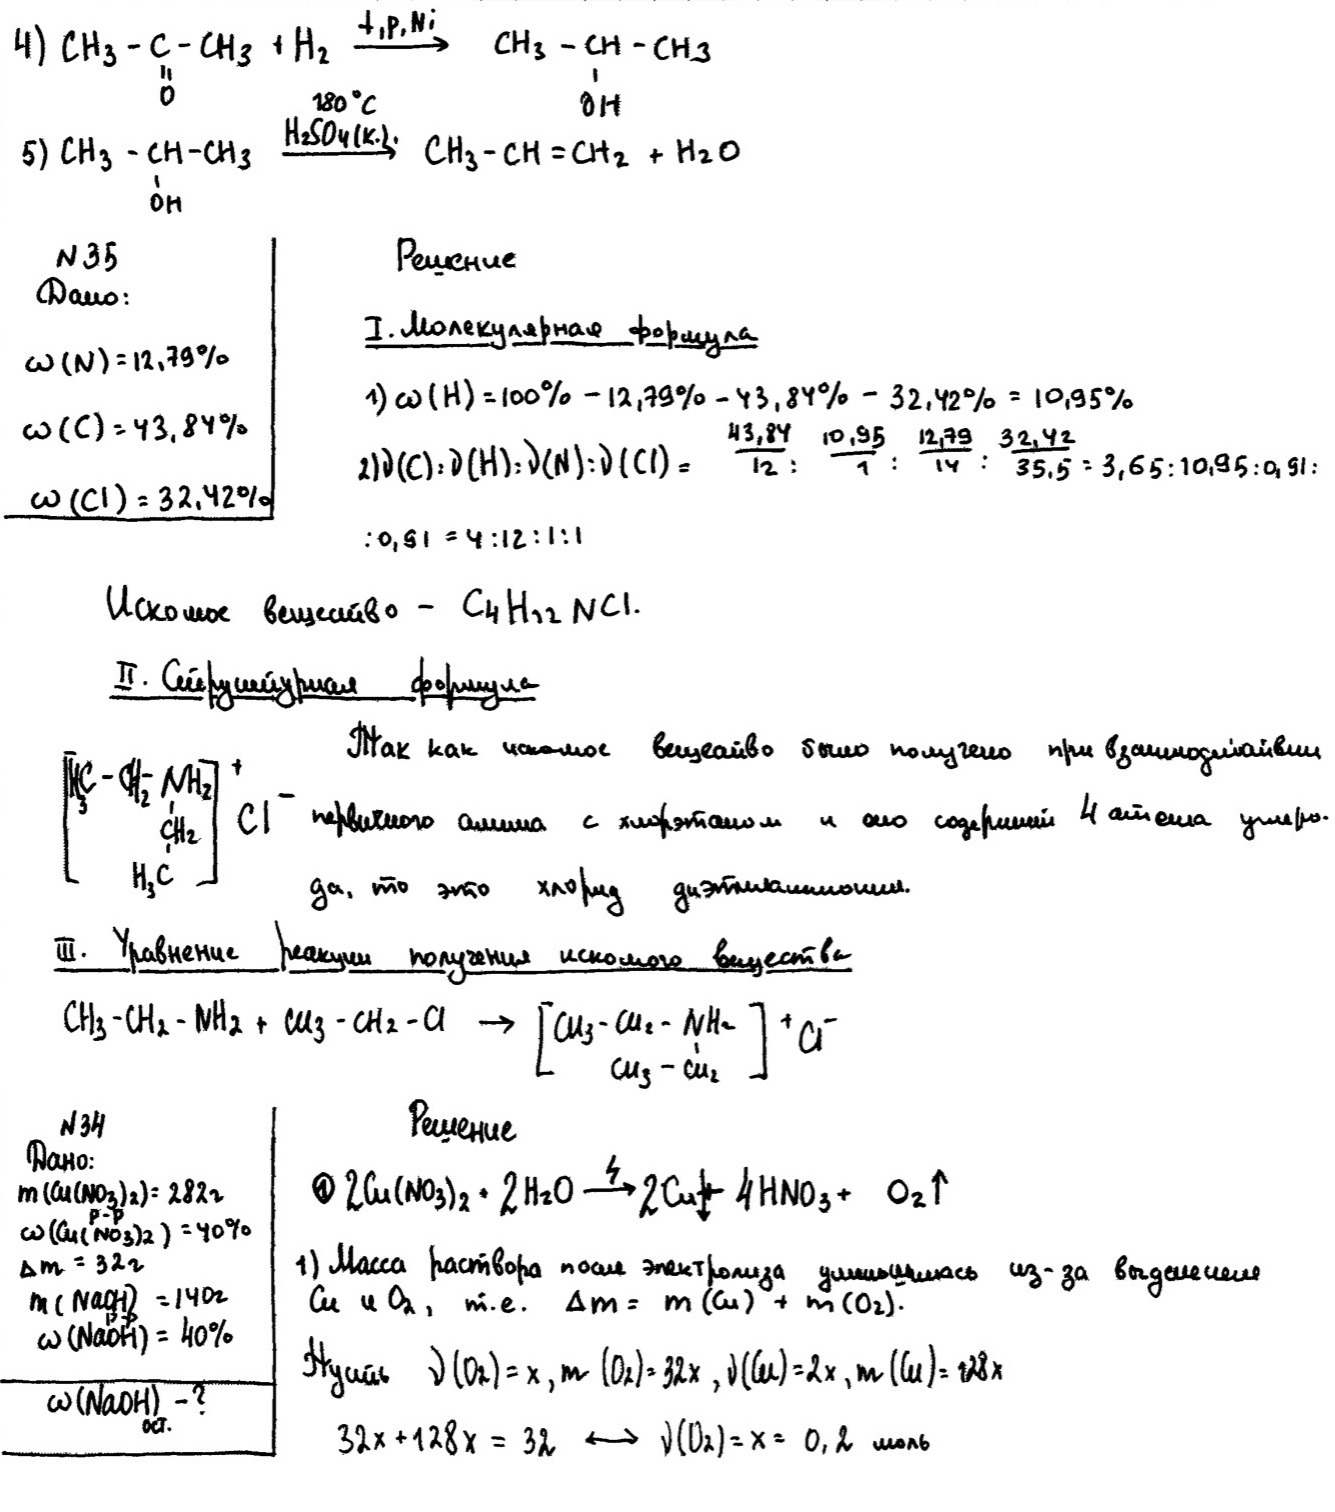 4) CH3 - C - CH3 + H2 t,p,Ni → CH3 - CH - CH3
O OH
5) CH3 - CH - CH3 180°C H2SO4(к.) → CH3 - CH = CH2 + H2O
OH
N 35
Дано:
ω(N) = 12,79%
ω(C) = 43,84%
ω(Cl) = 32,42%
Решение
I. Молекулярная формула
1) ω(H) = 100% - 12,79% - 43,84% - 32,42% = 10,95%
2) ν(C) : ν(H) : ν(N) : ν(Cl) = 43,84/12 : 10,95/1 : 12,79/14 : 32,42/35,5 = 3,65 : 10,95 : 0,91 :
: 0,91 = 4 : 12 : 1 : 1
Искомое вещество - C4H12NCl.
II. Структурная формула
[H3C - CH2 - NH2]+ Cl-
CH2
H3C
Так как искомое вещество было получено при взаимодействии
первичного амина с хлорэтаном и оно содержит 4 атома углеро-
да, то это хлорид диэтиламмония.
III. Уравнение реакции получения искомого вещества
CH3 - CH2 - NH2 + CH3 - CH2 - Cl → [CH3 - CH2 - NH2]+ Cl-
CH3 - CH2
N 34
Дано:
m(Cu(NO3)2) р-р = 282г
ω(Cu(NO3)2) = 40%
Δm = 32г
m(NaOH) р-р = 140г
ω(NaOH) = 40%
ω(NaOH) ост. - ?
Решение
① 2Cu(NO3)2 + 2H2O → 2Cu↓ + 4HNO3 + O2↑
1) Масса раствора после электролиза уменьшилась из-за выделения
Cu и O2, т.е. Δm = m(Cu) + m(O2).
Пусть ν(O2) = x, m(O2) = 32x, ν(Cu) = 2x, m(Cu) = 128x
32x + 128x = 32 ⟷ ν(O2) = x = 0,2 моль